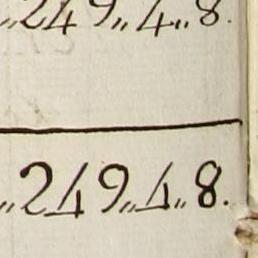 249„4„8.
„249„4„8.